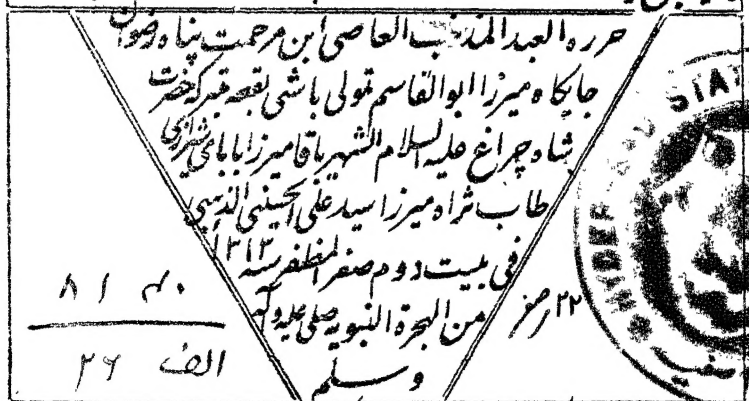 حرره العبد المذنب العاصی ابن مرحمت پناه رضوان
جایگاه میرزا ابوالقاسم متولی باشی بقعه متبرکه حضرت
شاه چراغ علیه السلام الشهیر باقا میرزا بابای شیرازی
طاب ثراه میرزا سید علی الحسینی الذهبی
فی بیست دوم صفر المظفر سنه ۱۳۱۳
من الهجرة النبویه صلی علیه وآله
وسلم
۲۲ صفر
۸۱
الف ۲۶
HYDERABAD STA